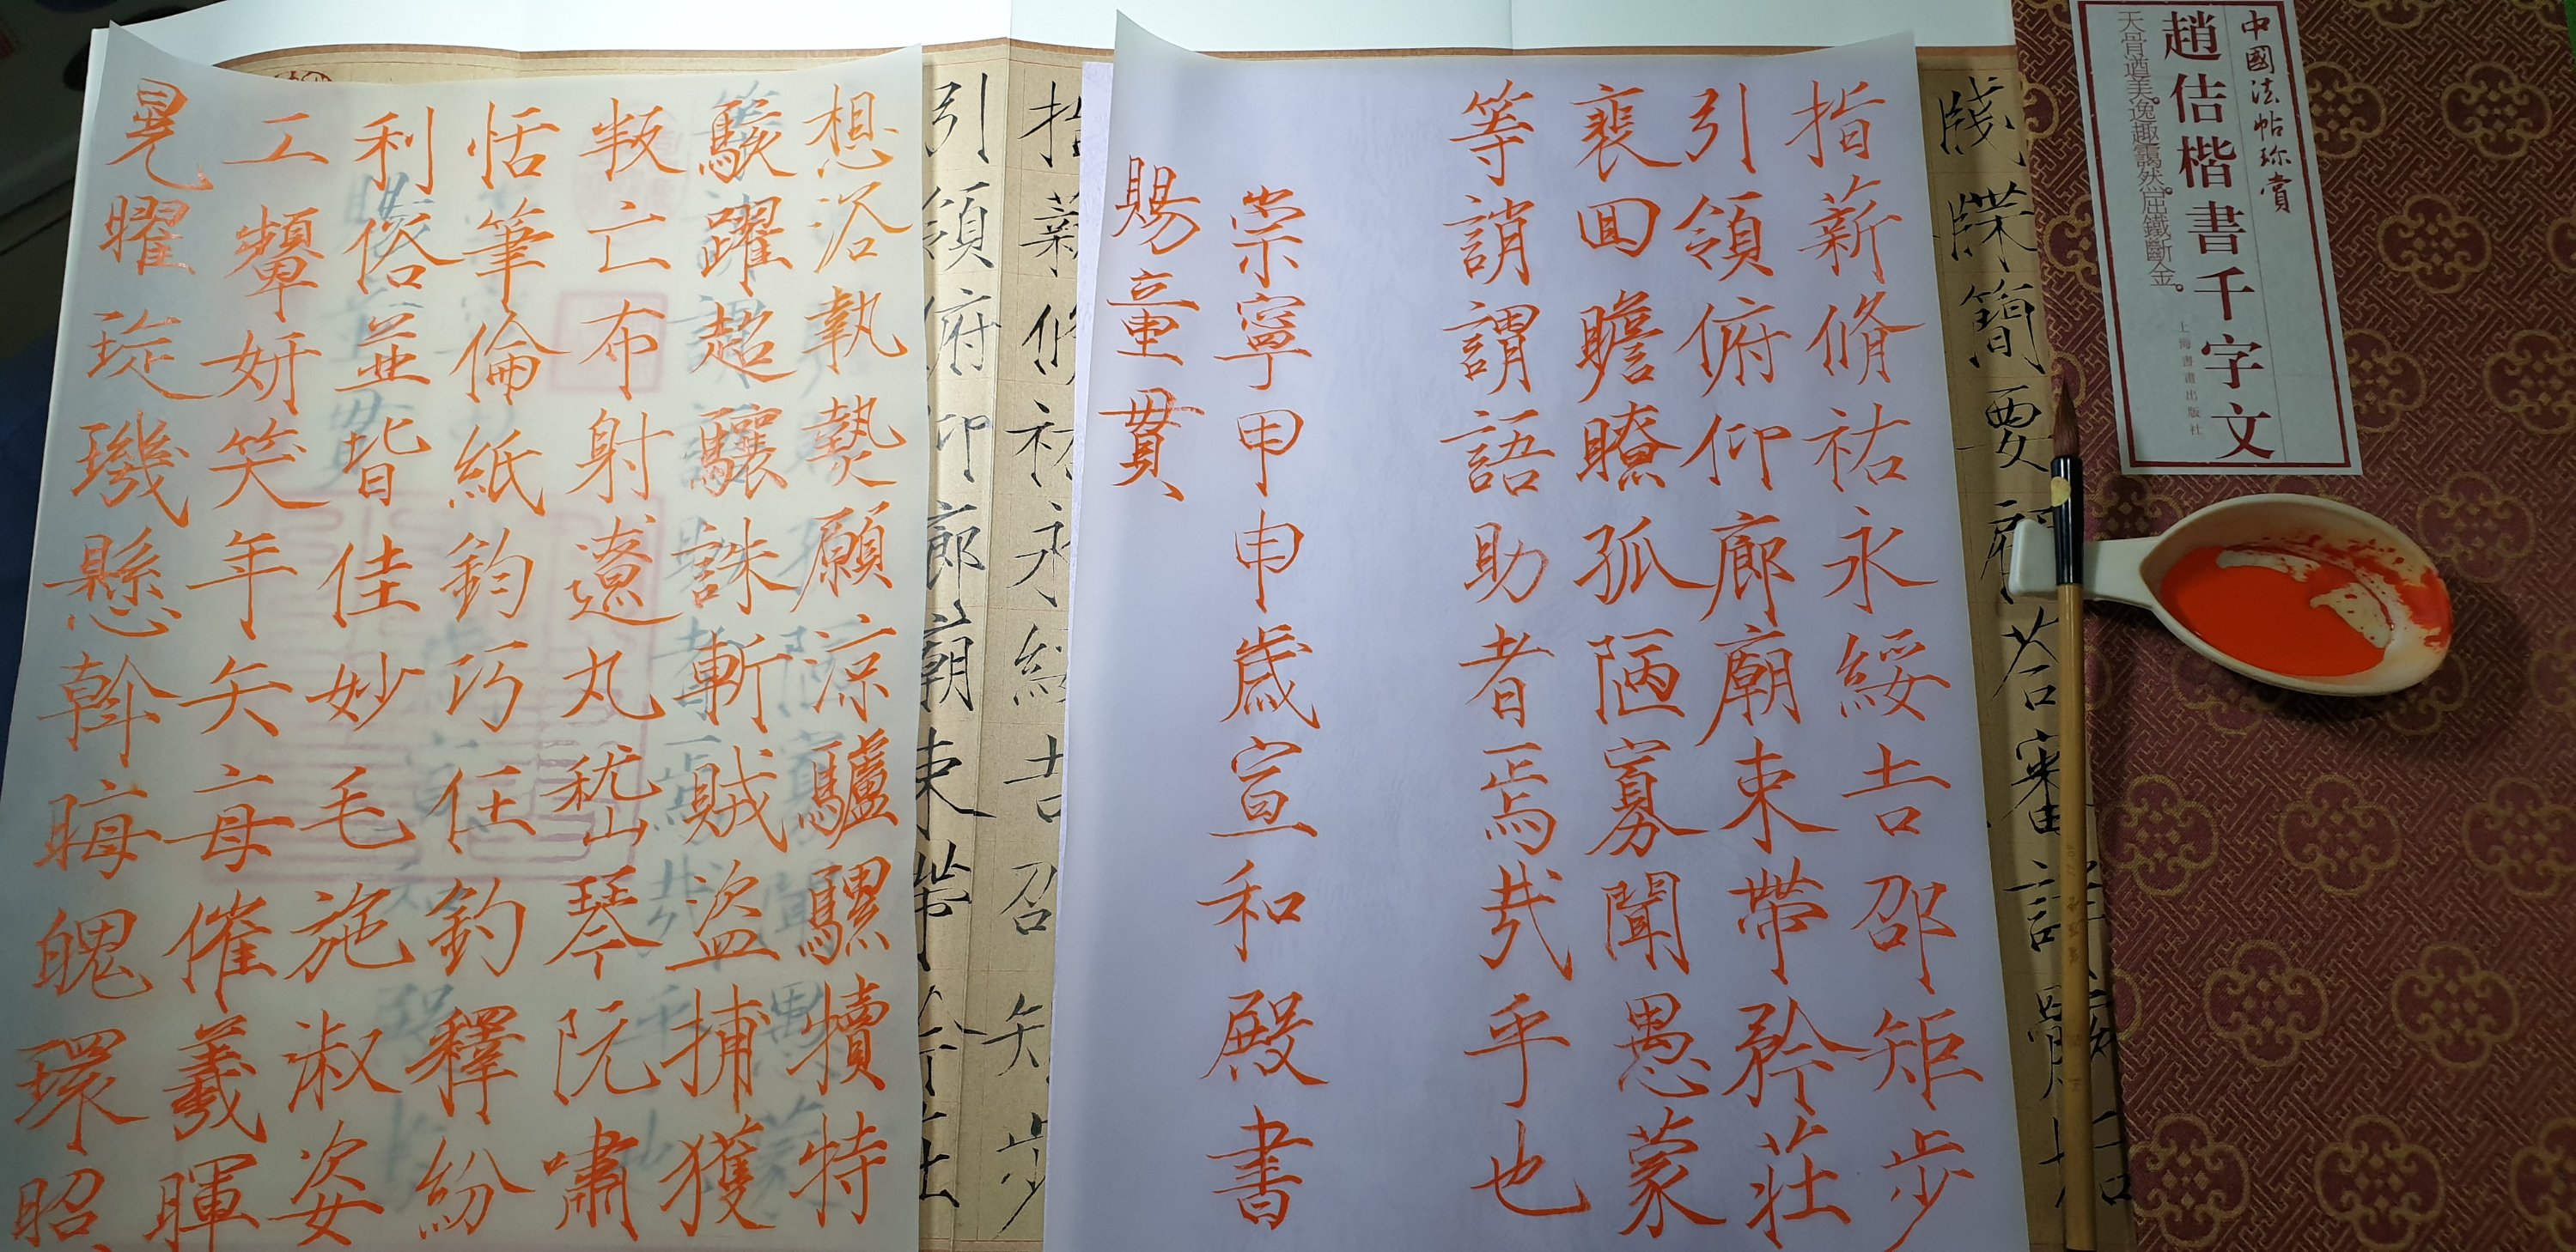 中國法帖珎賞
趙佶楷書千字文
天骨遒美。逸趣靄然。屈鐵斷金。
上海書畫出版社
牋牒簡要顧荅審詳骸垢
指薪脩祐永綏吉邵矩步
引領俯仰廊廟束帶矜莊
裵回瞻瞭孤陋寡聞愚蒙
等誚謂語助者焉哉乎也
崇寧甲申歲宣和殿書
賜童貫
指薪脩祐永綏吉
引領俯仰廊廟束帶矜莊
想浴執熱願涼驢騾犢特
駭躍超驤誅斬賊盜捕獲
叛亡布射遼丸嵇琴阮嘯
恬筆倫紙鈞巧任釣釋紛
利俗並皆佳妙毛施淑姿
工顰妍笑年矢每催羲暉
晃曜琁璣懸斡晦魄環昭